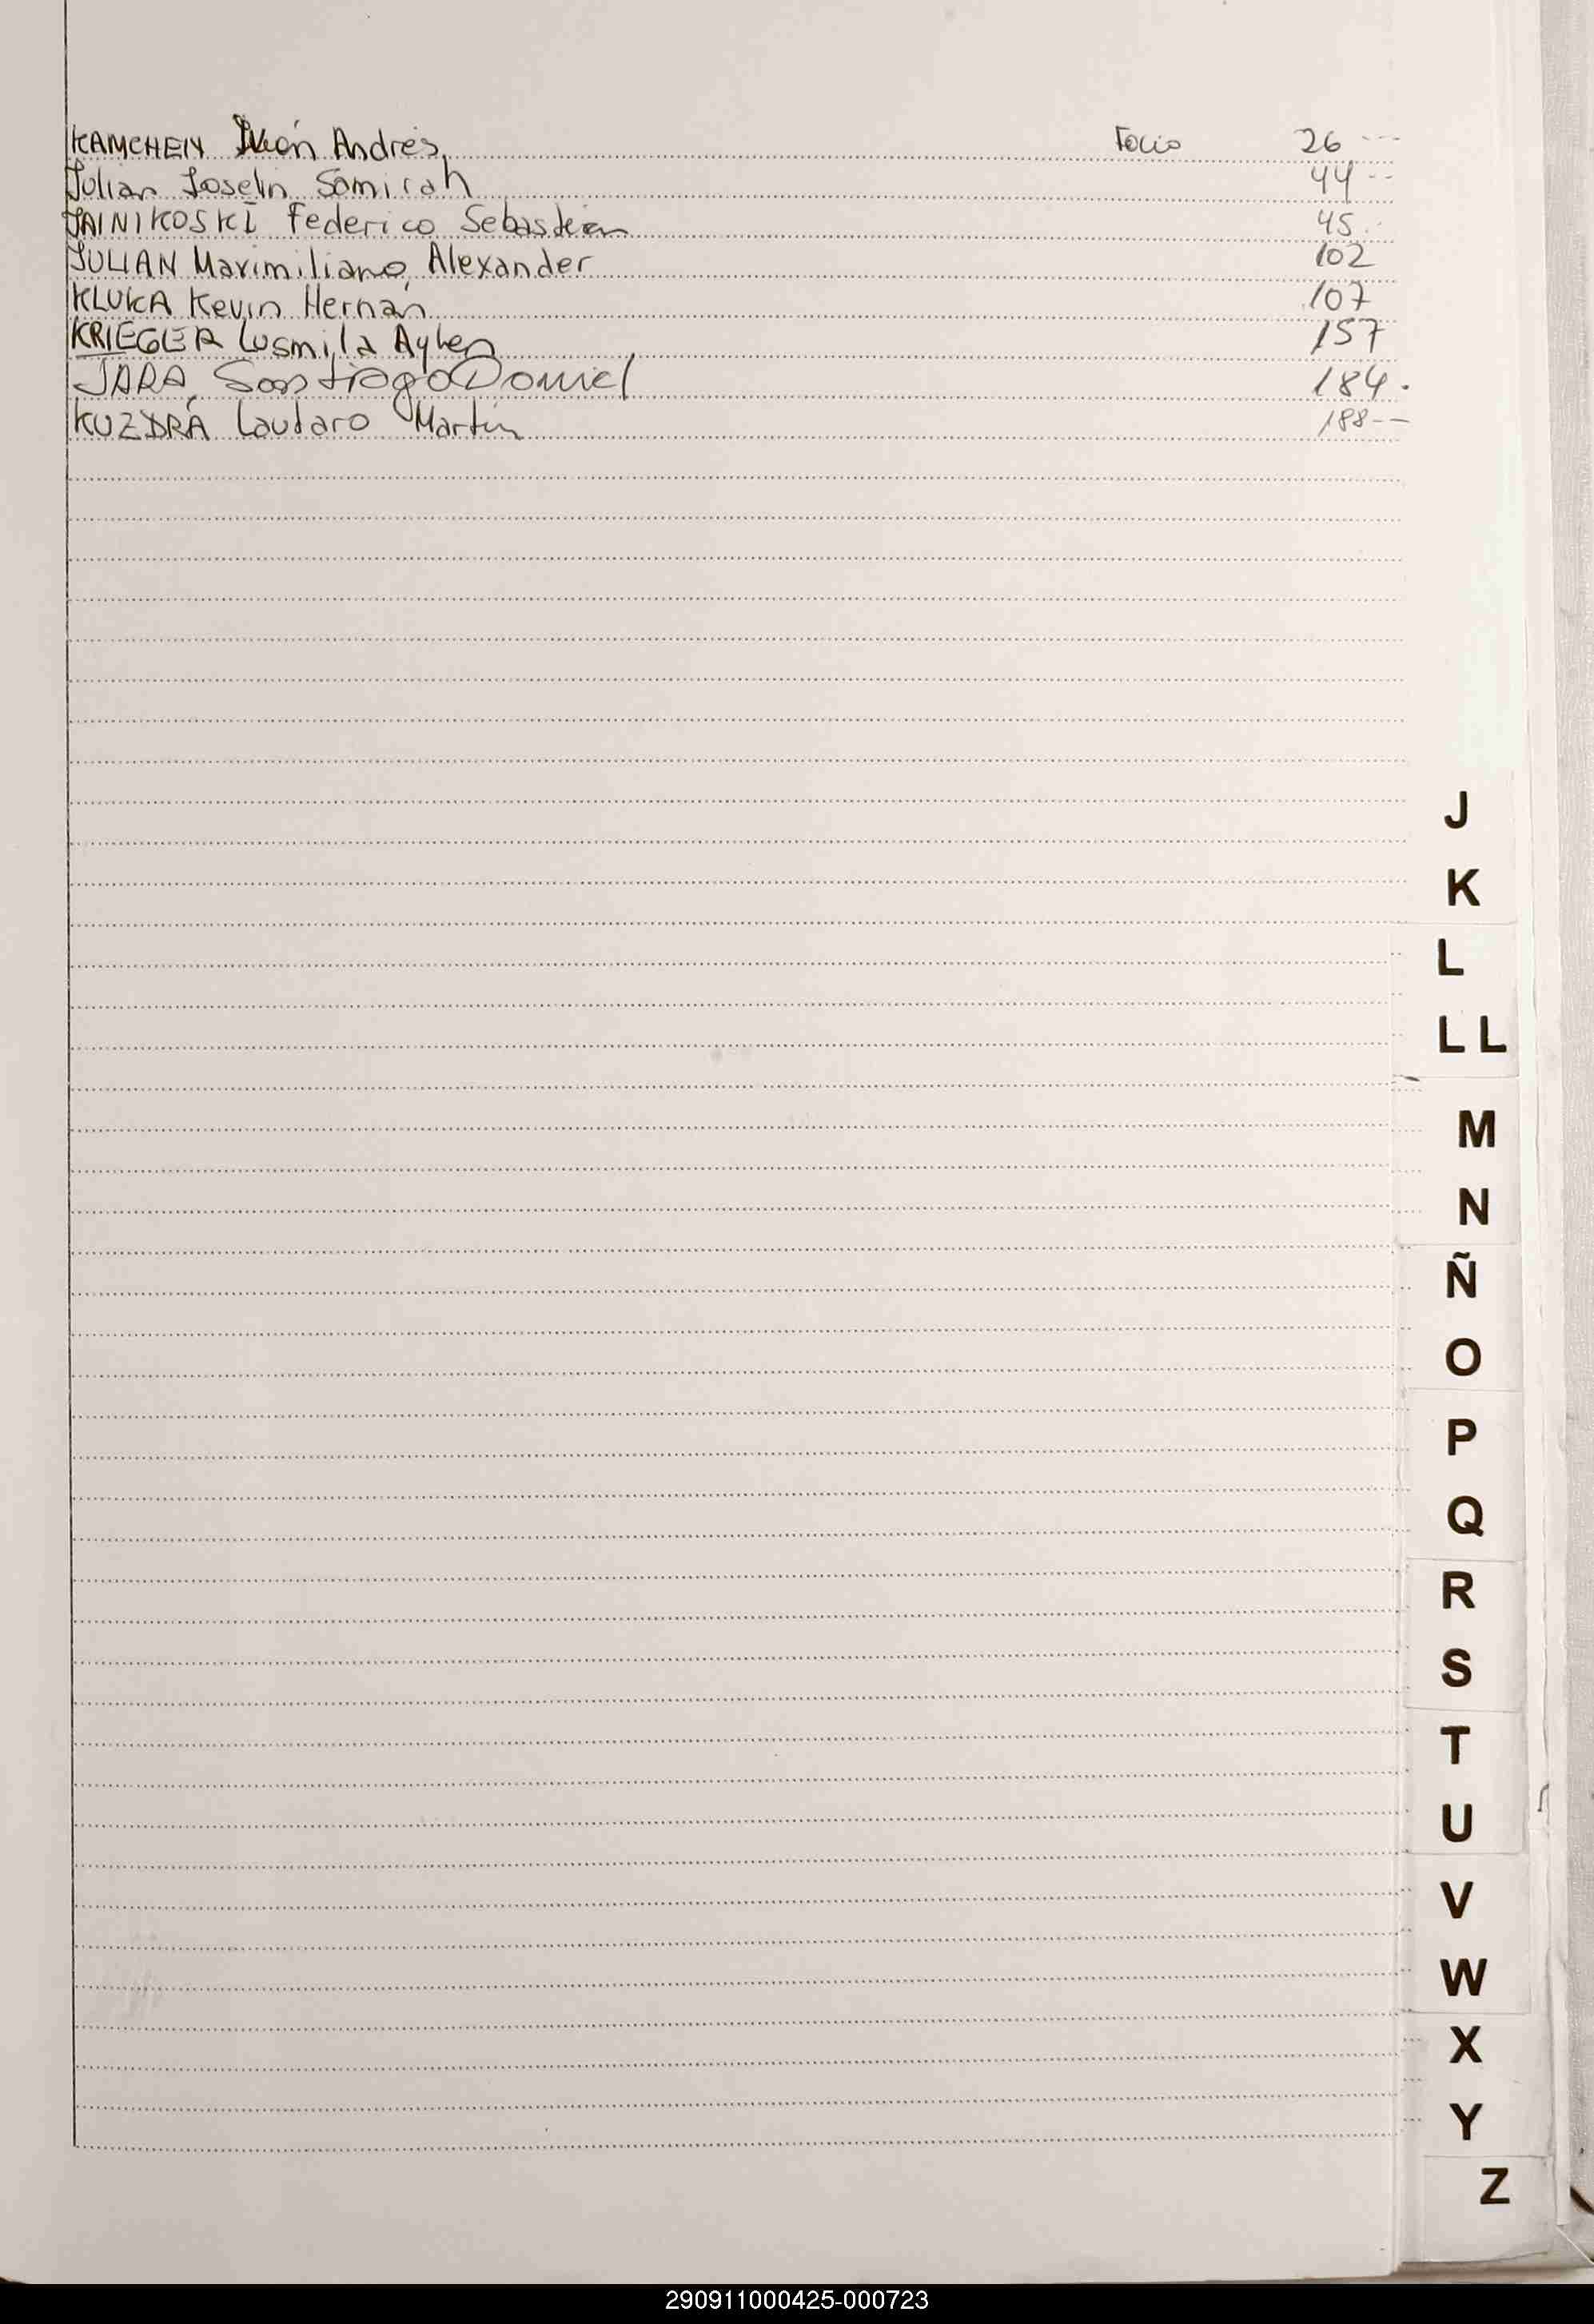 KAMCHEN Iván Andrés Folio 26 ---
Julian Joselin Samirah 44 --
JAINIKOSKI Federico Sebastián 45 -
JULIAN Maximiliano Alexander 102
KLUKA Kevin Hernán 107
KRIEGER Lusmila Aylen 157
JARA, Santiago Daniel 184.
KUZDRÁ Lautaro Martín 188--
J
K
L
LL
M
N
Ñ
O
P
Q
R
S
T
U
V
W
X
Y
Z
290911000425-000723